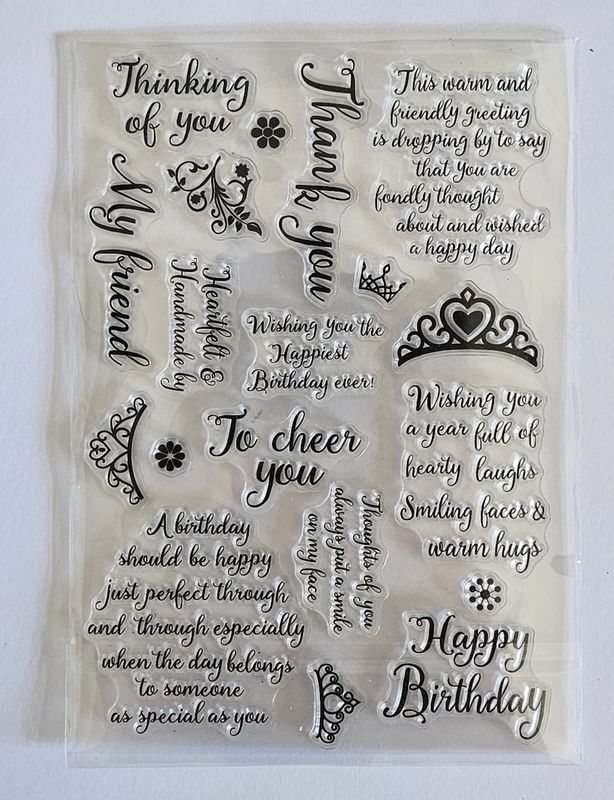 Thinking
of you
Thank you
This warm and
friendly greeting
is dropping by to say
that You are
fondly thought
about and wished
a happy day
My friend
Heartfelt &
Handmade by
Wishing You the
Happiest
Birthday ever!
To cheer
you
Wishing You
a year full of
hearty laughs
Smiling faces &
warm hugs
Thoughts of you
always put a smile
on my face
A birthday
should be happy
just perfect through
and through especially
when the day belongs
to someone
as special as you
Happy
Birthday